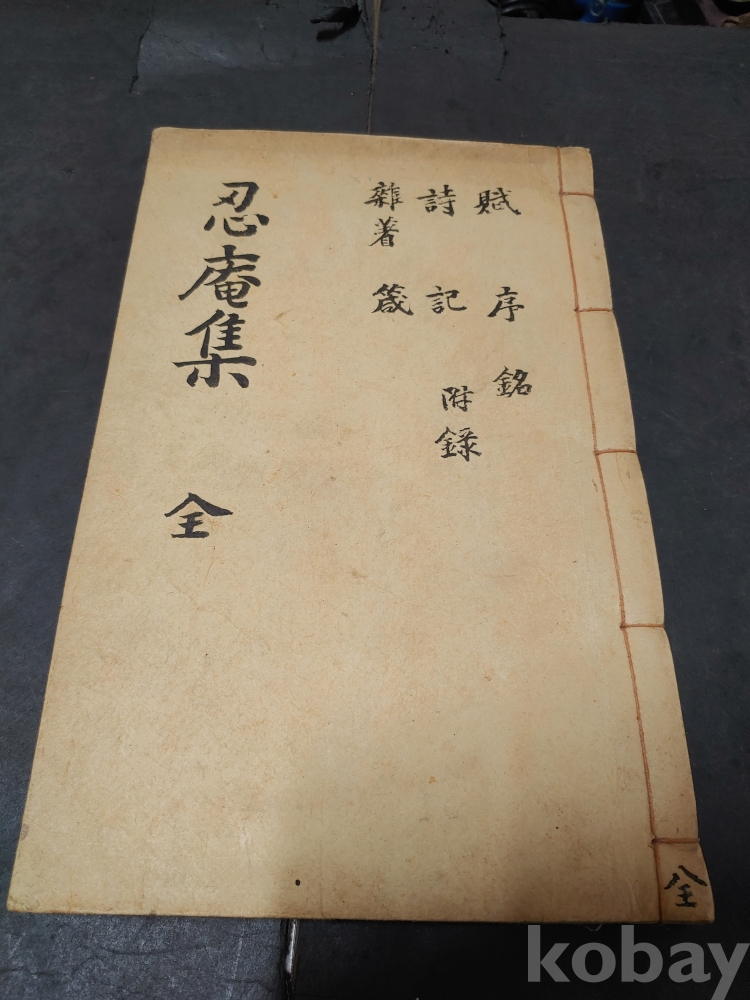 賦 序 銘
詩 記 附錄
雜著 箴
忍庵集 全
全
kobay